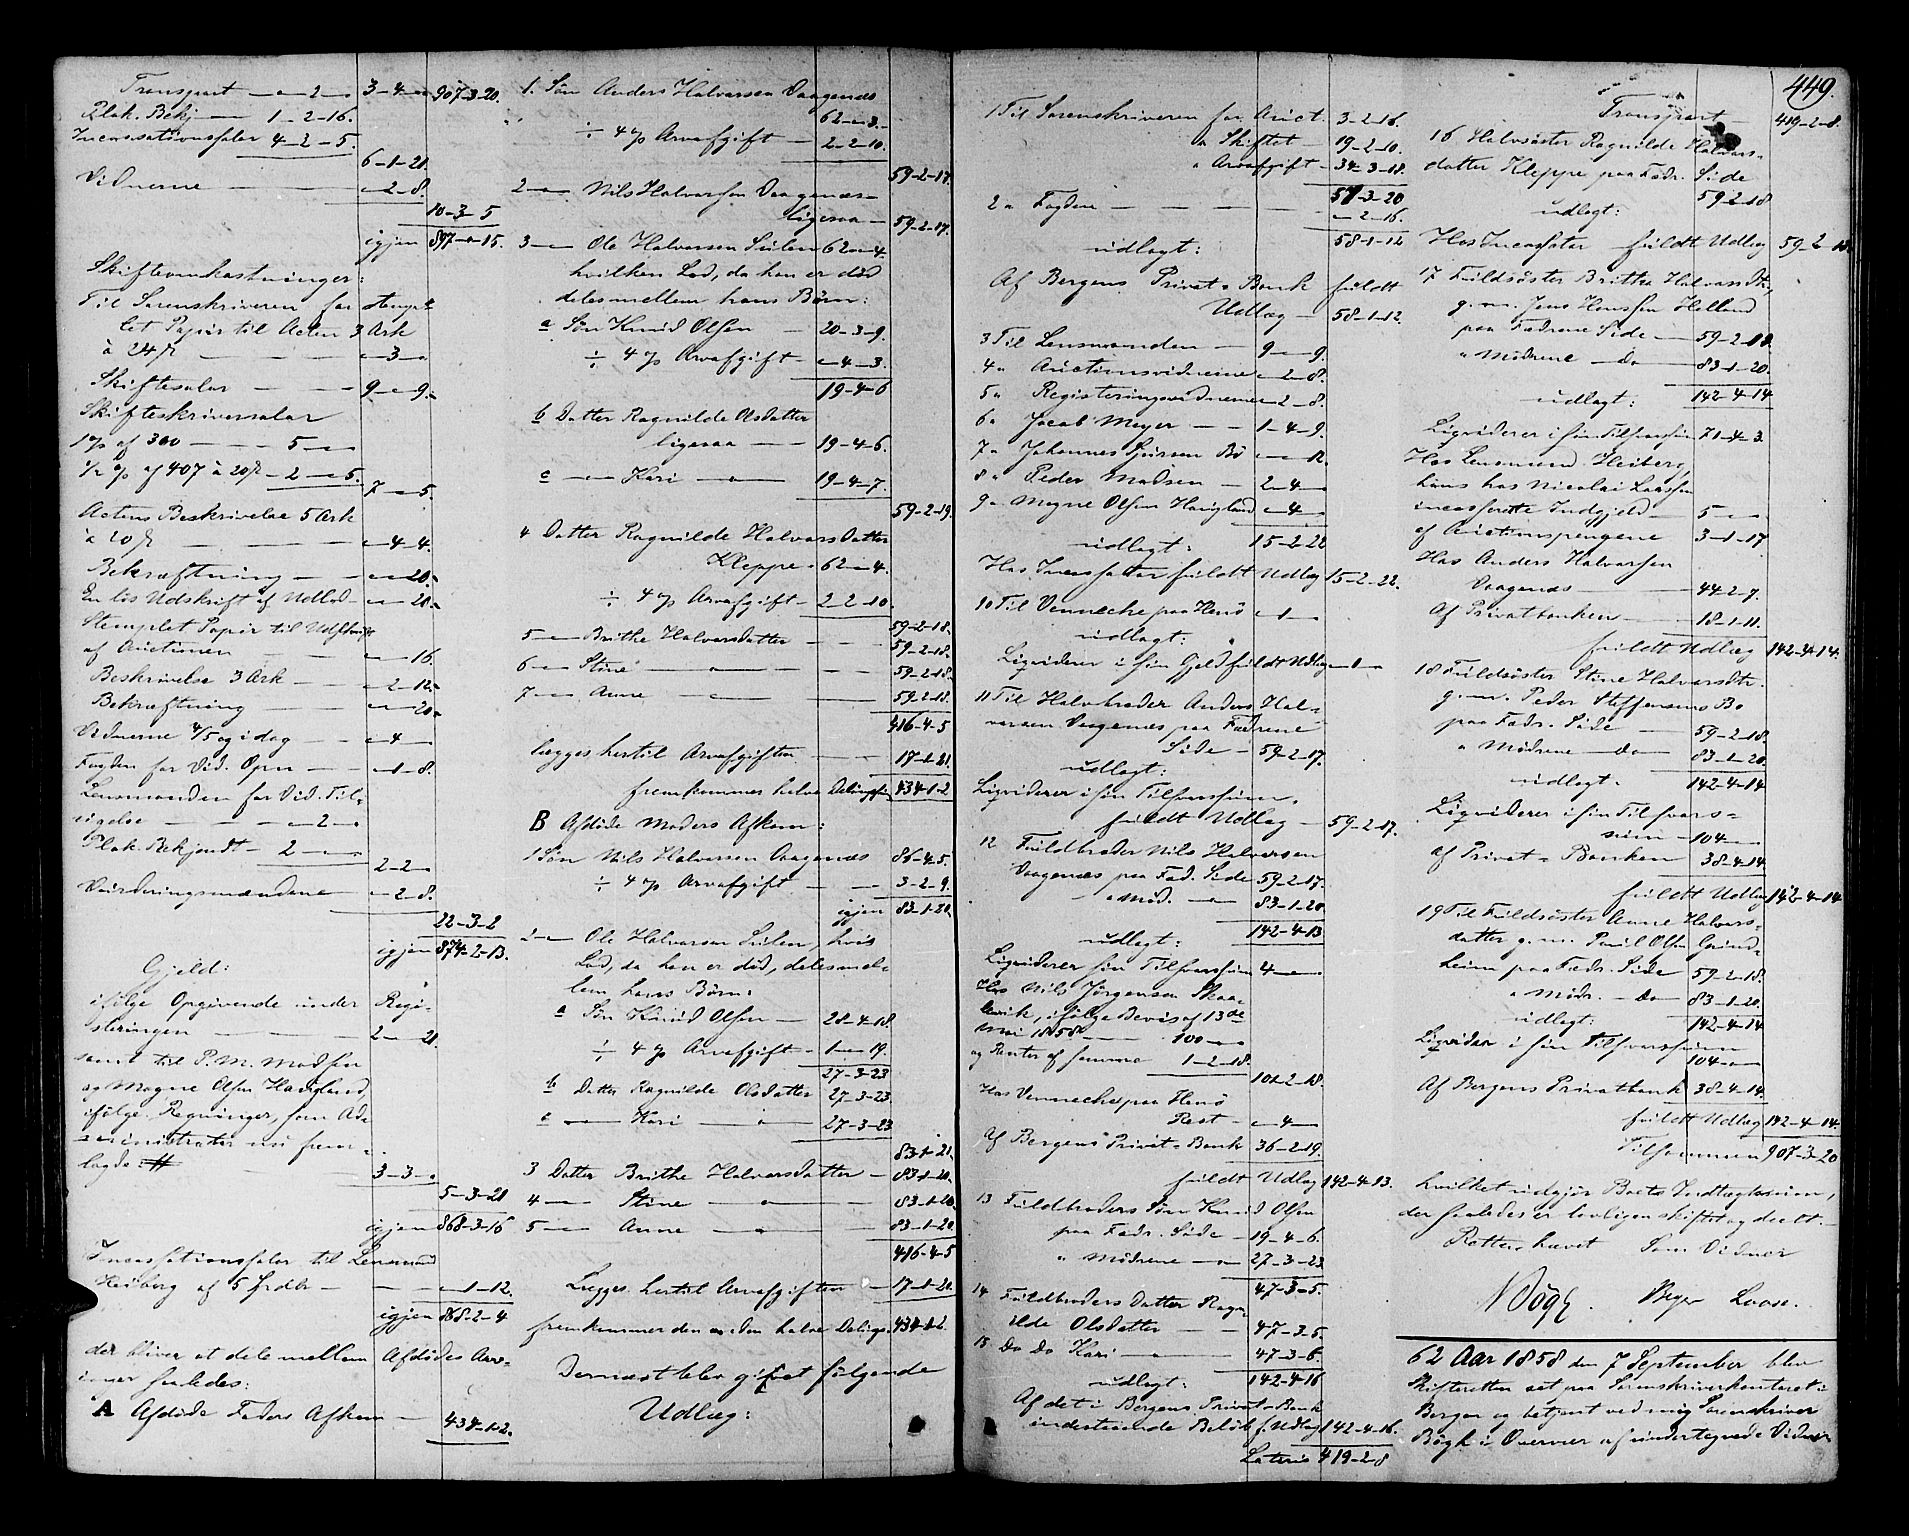 Transport — 2 — 3-4- 907-3-20.
Plak. Bekj — 1-2-16.
Incassationsfaler 4-2-5.
6-1-21.
Vidnerne — -2-8.
10-3-5
igjen 897-0-15.
Skifteomkostninger:
Til Sorenskriveren for stemp-
let Papir til Acten 3 Ark
à 24 — -3-
Skiftesalar — 9-9.
Skifteskriversalar
1 % af 300 — 5-
½ % af 407 à 20 — 2-5.
7-5.
Actens Beskrivelse 5 Ark
à 10 — -4-4.
Bekræftning — 20.
En løs Udskrift af Udlod- 20.
Stemplet Papir til Udskrift
af Auctionen — 16.
Beskrivelse 3 Ark — 2-12.
Bekræftning — 20.
Vidnerne 4/5 og idag — -4-
Fogden for Vid. Opn — -1-8.
Lensmanden for Vid. Til-
sigelse — 2
Plak. Bekjendt — 2
2-2-
Vurderingsmændene -2-8.
22-3-2
igjen 874-2-13.
Gjeld:
ifølge Opgivende under Regi-
steringen — 2 — 21.
samt til P. M. Madsen
og Magne Olsen Haugland,
ifølge Regninger, som Ad-
ministrator nu frem-
lagde:
3-3-
5-3-21
igjen 868-3-16
Incassationsfaler til Lensmand
Heiberg af 5 Spdlr — -1-12.
igjen 868-2-4
der bliver at dele mellem Afdødes Arv-
inger saaledes:
A Afdøde Faders Afkom — 434-1-2.
1. Søn Anders Halvorsen Vaagenæs
62-3.
÷ 4 % Arvafgift — 2-2-10.
59-2-17.
2 — Nils Halvorsen Vaagenæs
ligesaa — 59-2-17.
3 — Ole Halvorsen Sulen 62-4.
hvilken Lod, da han er død
deles mellem hans Børn:
a Søn Knud Olsen — 20-3-9.
÷ 4 % Arvafgift — -4-3.
19-4-6
b Datter Ragnilde Olsdatter
ligesaa — 19-4-6.
c — Kari — 19-4-7.
59-2-19.
4 Datter Ragnilde Halvorsdatter
Kleppe 62-4.
÷ 4 % Arvafgift — 2-2-10.
59-2-18.
5 — Brithe Halvorsdatter — 59-2-18.
6 — Stine — 59-2-18.
7 — Anne — 59-2-18.
416-4-5
lægges hertil Arvafgiften — 17-1-21.
fremkommer halve Delings 434-1-2.
B Afdøde Moders Afkom:
1 Søn Nils Halvorsen Vaagenæs 86-4-5.
÷ 4 % Arvafgift — 3-2-9.
igjen 83-1-20.
2 — Ole Halvorsen Sulen, hvis
Lod, da han er død, deles mel-
lem hans Børn:
a Søn Knud Olsen — 28-4-18.
÷ 4 % Arvafgift — 1-19.
27-3-23
b Datter Ragnilde Olsdatter 27-3-23
c — Kari — 27-3-23
83-1-21.
3 Datter Brithe Halvorsdatter — 83-1-20.
4 — Stine — 83-1-20.
5 — Anne — 83-1-20.
416-4-5
Lægges hertil Arvafgiften — 17-1-21.
fremkommer den anden halve Delings. 434-1-2.
Dernæst blev gjort følgende
Udlæg:
449.
1 Til Sorenskriveren for Auct. 3-2-16.
" Skiftet — 19-2-10.
" Arvafgift — 34-3-18.
57-3-20
2 " Fogden — -2-16.
58-1-12
udlagt:
Af Bergens Privat-Bank fuldt
Udlæg — 58-1-12.
3 Til Lensmanden — 9-9.
4 " Auctionsvidnerne -2-8.
5 " Registeringsvidnerne -2-8.
6 " Jacob Meyer — 1-4-9.
7 " Johannes Bø — 12.
8 " Peder Madsen — 2-4-
9 " Magne Olsen Haugland -4-
udlagt: 15-2-22
Hos Incassator fuldt Udlæg 15-2-22.
10 Til Venneche paa Henø -1-
udlagt:
Liqviderer i sin Gjeld fuldt Udlæg -1-
11 Til Halvbroder Anders Hal-
vorsen Vaagenæs paa Fædrene
Side — 59-2-17.
udlagt:
Liqviderer i sin Tilsvarssum,
fuldt Udlæg — 59-2-17.
12 Fuldbroder Nils Halvorsen
Vaagenæs paa Fæd. Side 59-2-17.
" Mød. — 83-1-20
udlagt: 142-4-13
Liqviderer sin Tilsvarssum 4-
Hos Nils Jørgensen Skaa-
levik, ifølge Bevis af 13de
Mai 1858 — 100-
og Renter af samme 1-2-18.
101-2-18.
Hos Venneche paa Henø
Rest — -4-
Af Bergens Privat-Bank 36-2-19.
fuldt Udlæg 142-4-13.
13 Fuldbroders Søn Knud Olsen
paa Fæd. Side — 19-4-6.
" Mødrene — 27-3-23
47-3-5.
14 Fuldbroders Datter Ragn-
ilde Olsdatter — 47-3-5.
15 Do Do Kari — 47-3-6.
udlagt: 142-4-16
Af det i Bergens Privat-Bank
indestaaende Beløb f. Udlæg 142-4-16.
Lateris 419-2-8
Transport — 419-2-8.
16 Halvsøster Ragnilde Halvors-
datter Kleppe paa Fædr. Side
59-2-18
udlagt:
Hos Incassator fuldt Udlæg 59-2-18.
17 Fuldsøster Brithe Halvorsdtr,
g. m. Jens Hansen Helland
paa Fædrene Side — 59-2-18.
" Mødrene — Do — 83-1-20.
udlagt: 142-4-14
Liqviderer i sin Tilsvarssum 71-4-3.
Hos Lensmand Heiberg,
hans hos Nicolai Larssen
incasserede Indgjeld — 5-
af Auctionspengene 3-1-17
Hos Anders Halvorsen
Vaagenæs — 44-2-7.
Af Privatbanken — 18-1-11.
fuldt Udlæg 142-4-14.
18 Fuldsøster Stine Halvorsdtr.
g. m. Peder Steffensens Bo
paa Fædr. Side — 59-2-18.
" Mødrene — Do — 83-1-20.
udlagt. 142-4-14
Liqviderer i sin Tilsvars-
sum — 104-
af Privat-Banken 38-4-14.
fuldt Udlæg 142-4-14
19 Til Fuldsøster Anne Halvors-
datter g. m. Poul Olsen Grind-
heim paa Fædr. Side 59-2-18.
" Mødr. — Do — 83-1-20.
udlagt: 142-4-14
Liqvider i sin Tilsvarssum
104-
Af Bergens Privatbank 38-4-14.
fuldt Udlæg 142-4-14.
Tilsammen 907-3-20
hvilket udgjør Boets Indtægtssum,
der saaledes er lovligen skiftet og deelt.
Retten hævet Som Vidner
Bøgh. Beyer Loose.
62 Aar 1858 den 7 September blev
Skifteretten sat paa Sorenskriverkontoret i
Bergen og betjent ved mig Sorenskriver
Bøgh i Overvær af undertegnede Vidner